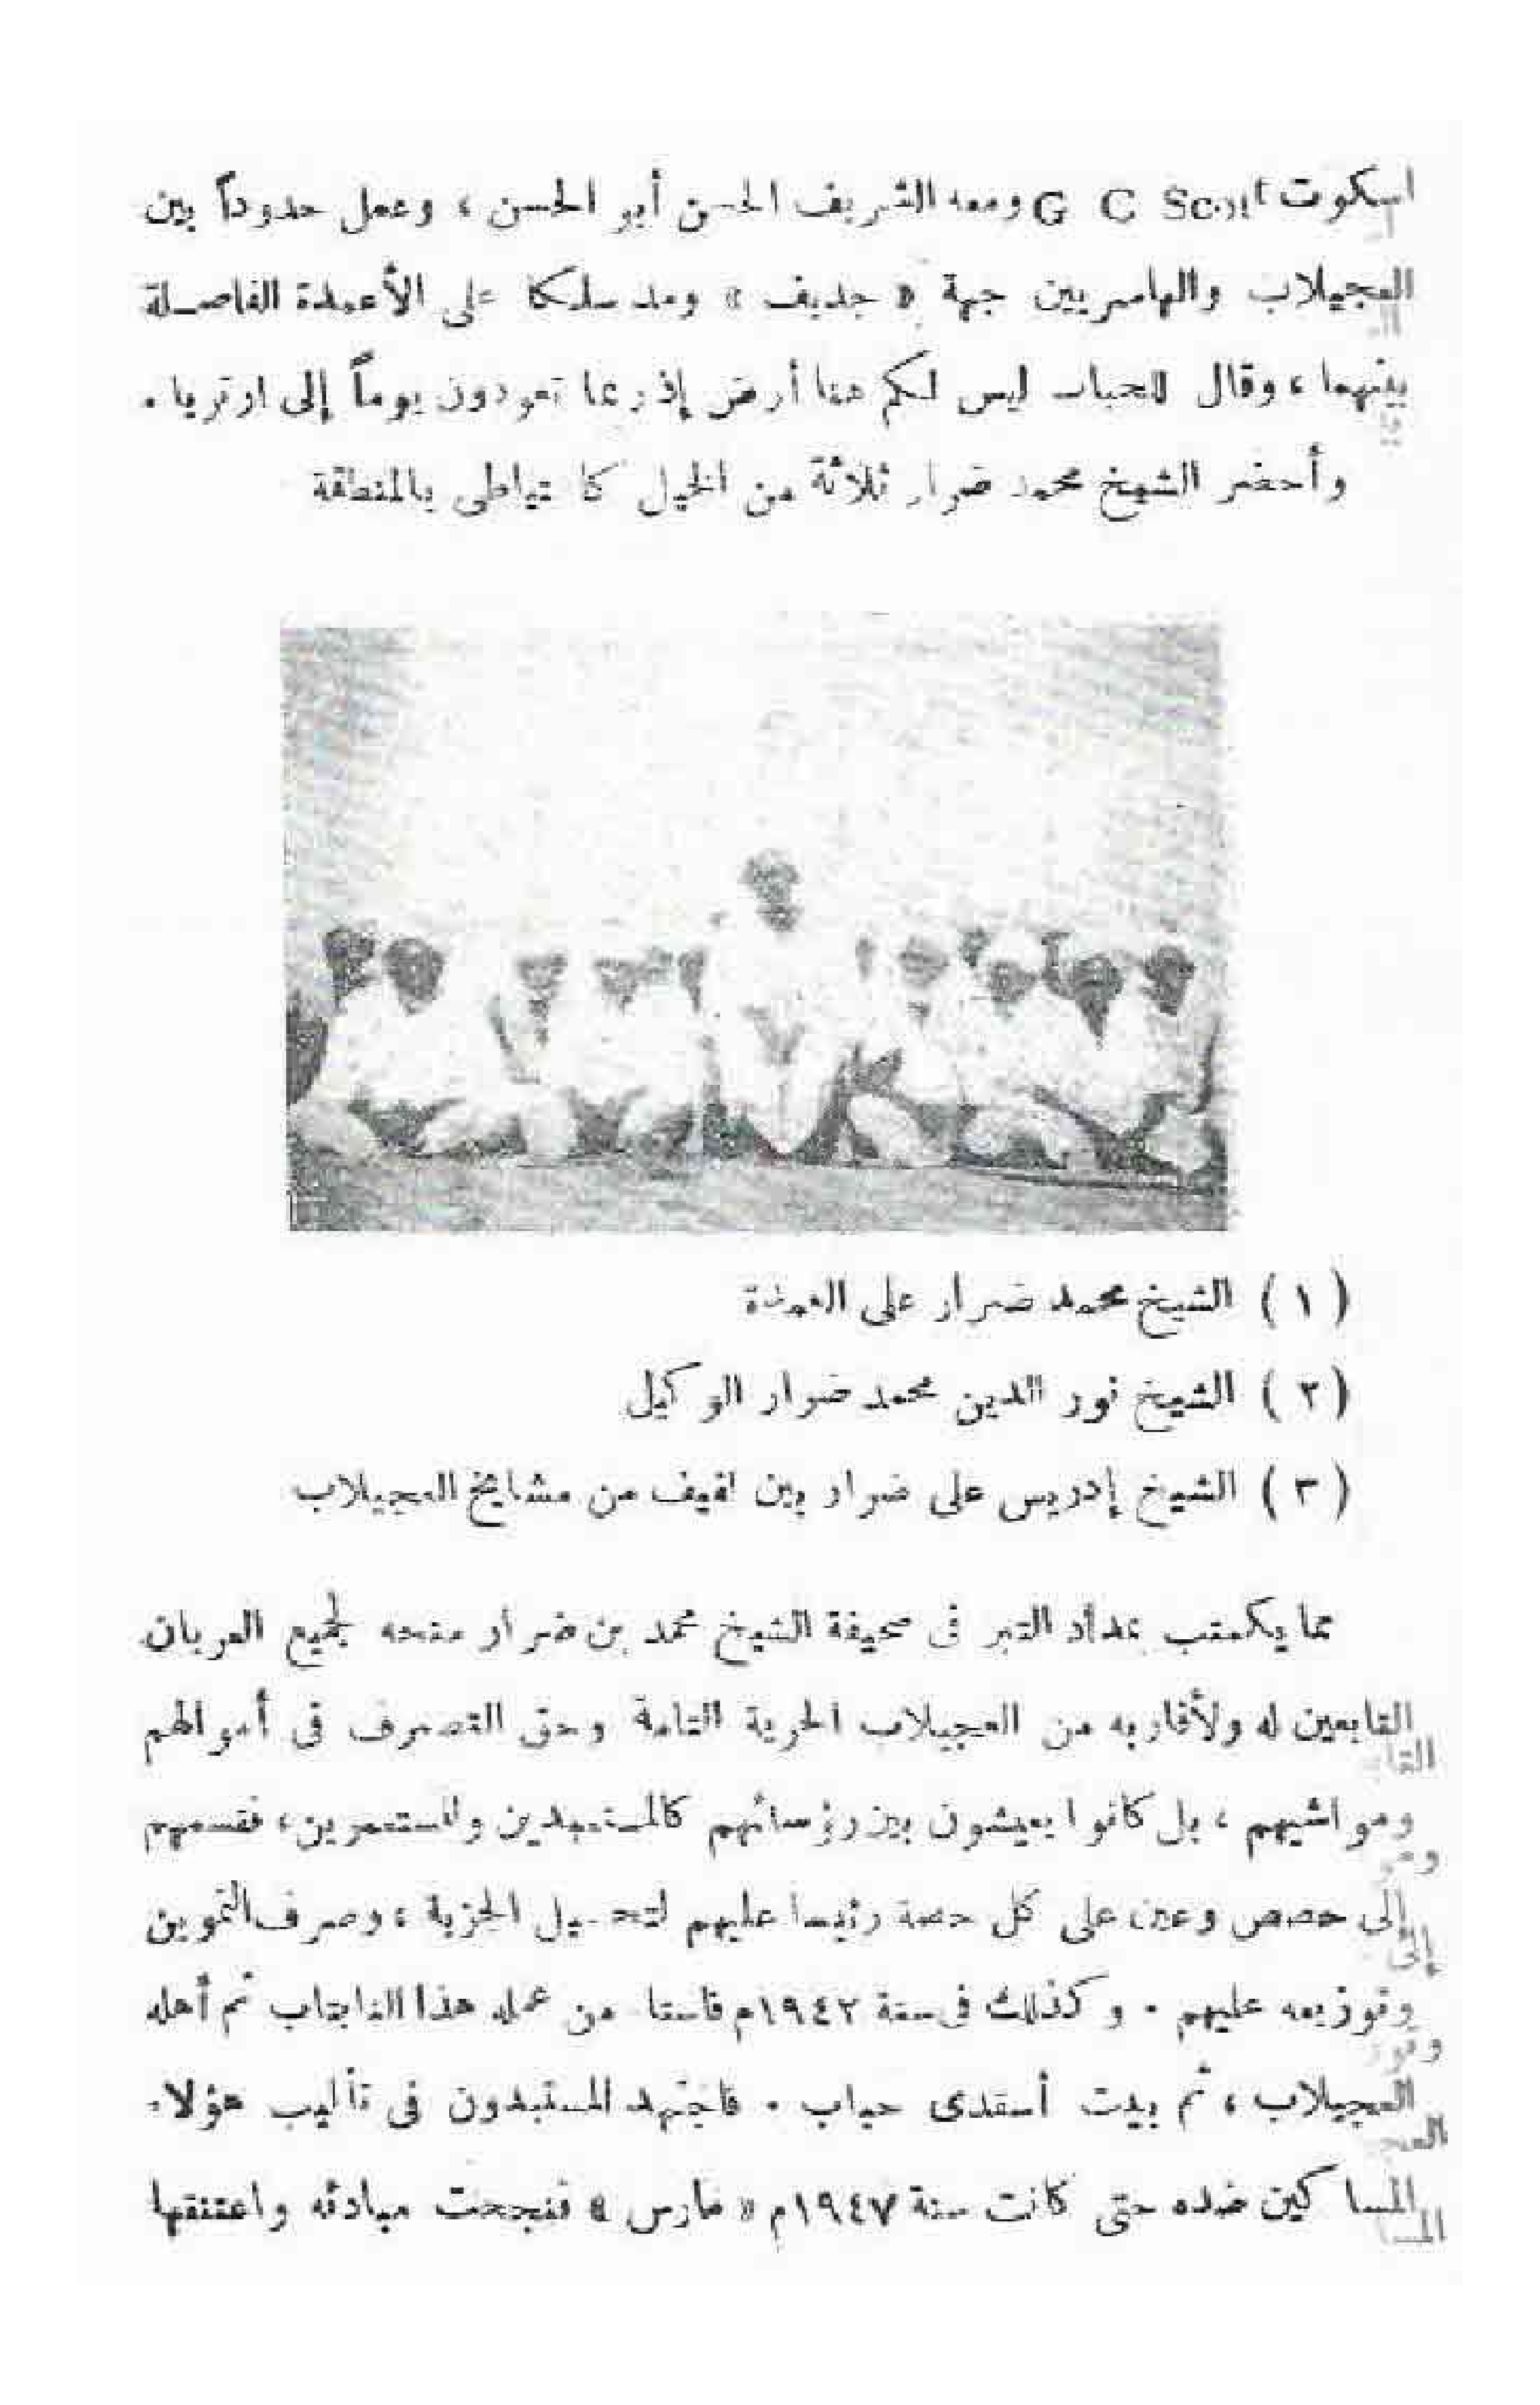 اسكوت G C Scott ومعه الشريف الحسن أبو الحسن ، وعمل حدوداً بين
العجيلاب والهاسريين جهة « جديف » ومد سلكا على الأعمدة الفاصلة
بينهما ، وقال للحباب ليس لكم هنا أرض إذ ربما تعودون يوماً إلى ارتريا .
وأحضر الشيخ محمد ضرار ثلاثة من الخيل كا بالمنطقة
( ١ ) الشيخ محمد ضرار على العمدة
( ٢ ) الشيخ نور الدين محمد ضرار الوكيل
( ٣ ) الشيخ إدريس على ضرار بين لفيف من مشايخ العجيلاب
مما يكتب بمداد التبر فى صحيفة الشيخ محمد بن ضرار منحه لجميع العربان
التابعين له ولأقاربه من العجيلاب الحرية التامة وحق التصرف فى أموالهم
ومواشيهم ، بل كانوا يعيشون بين رؤسائهم كالمستعبدين والمستعمرين ، فقسمهم
إلى حصص وعين على كل حصة رئيسا عليهم لتحصيل الجزية ، وصرف التموين
وتوزيعه عليهم . وكذلك فى سنة ١٩٤٢م من عمله هذا النابتاب ثم أهله
العجيلاب ، ثم بيت أسقدى حباب . فاجتهد المستبدون فى تأليب هؤلاء
المساكين ضده حتى كانت سنة ١٩٤٧م « مارس » فنجحت مبادئه واعتنقها